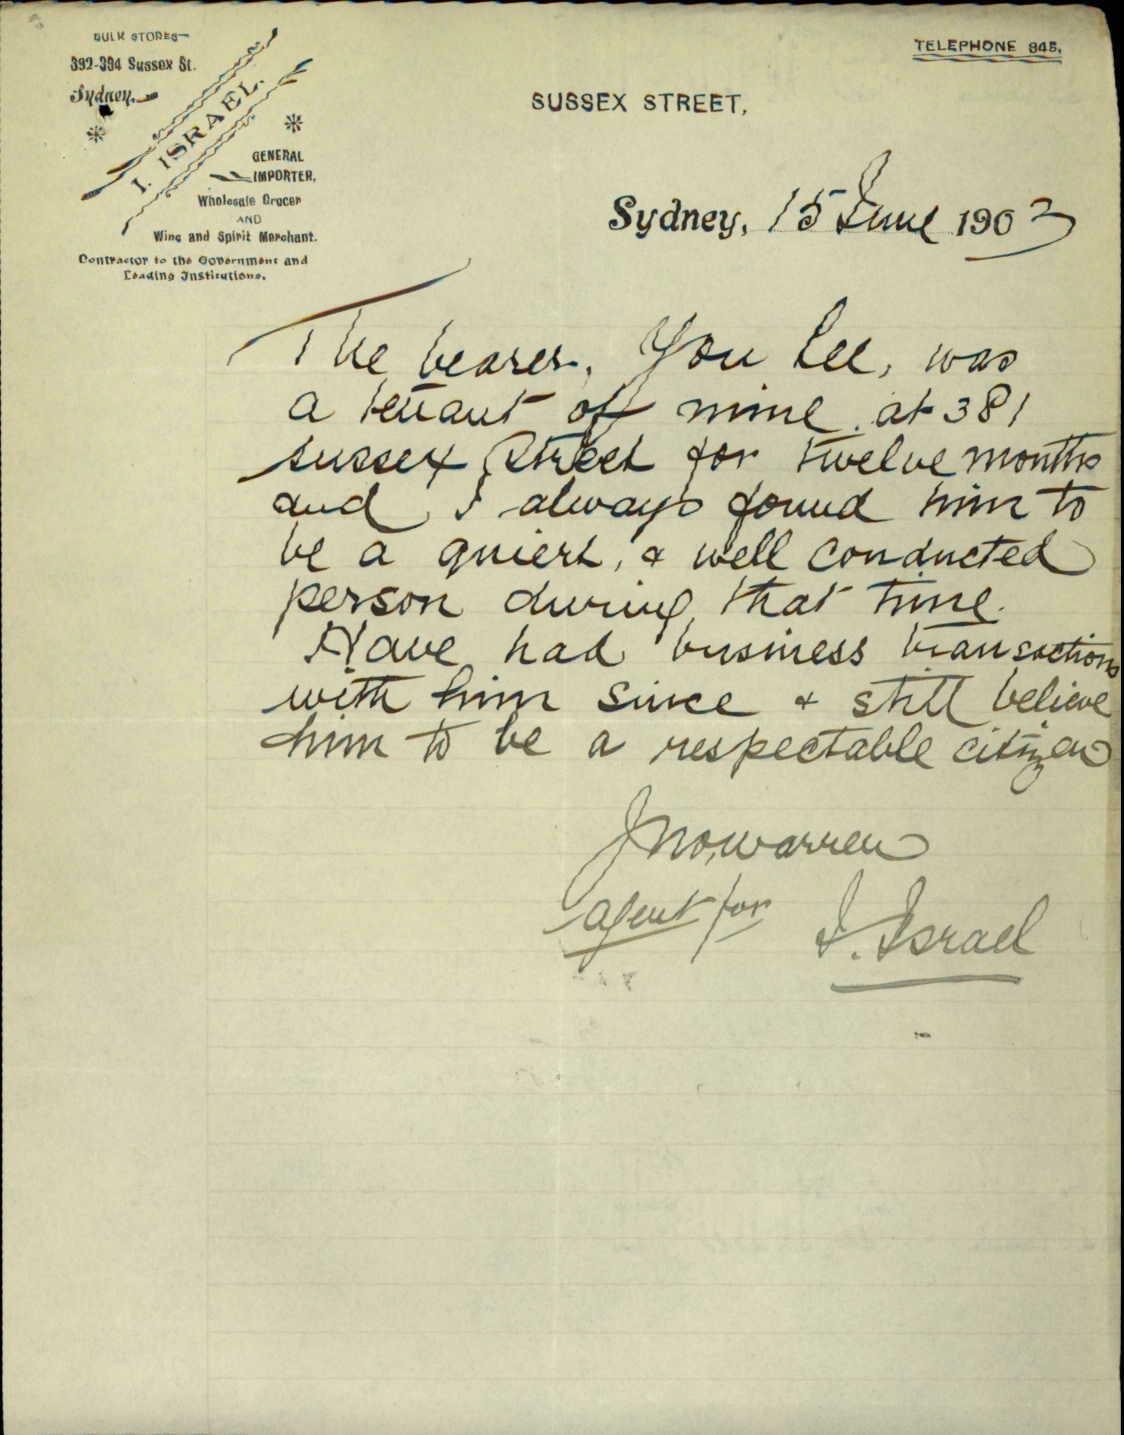 BULK STORES—
392-394 Sussex St.
Sydney.
I. ISRAEL.
GENERAL
IMPORTER,
Wholesale Grocer
AND
Wine and Spirit Merchant.
Contractor to the Government and
Leading Institutions.
TELEPHONE 845.
SUSSEX STREET,
Sydney, 15 June 1903
The bearer, You Lee, was
a tenant of mine at 381
Sussex Street for twelve months
and I always found him to
be a quiert, & well conducted
person during that time.
Have had business transactions
with him since & still believe
him to be a respectable citizen
Jno, Warren
agent for I. Israel